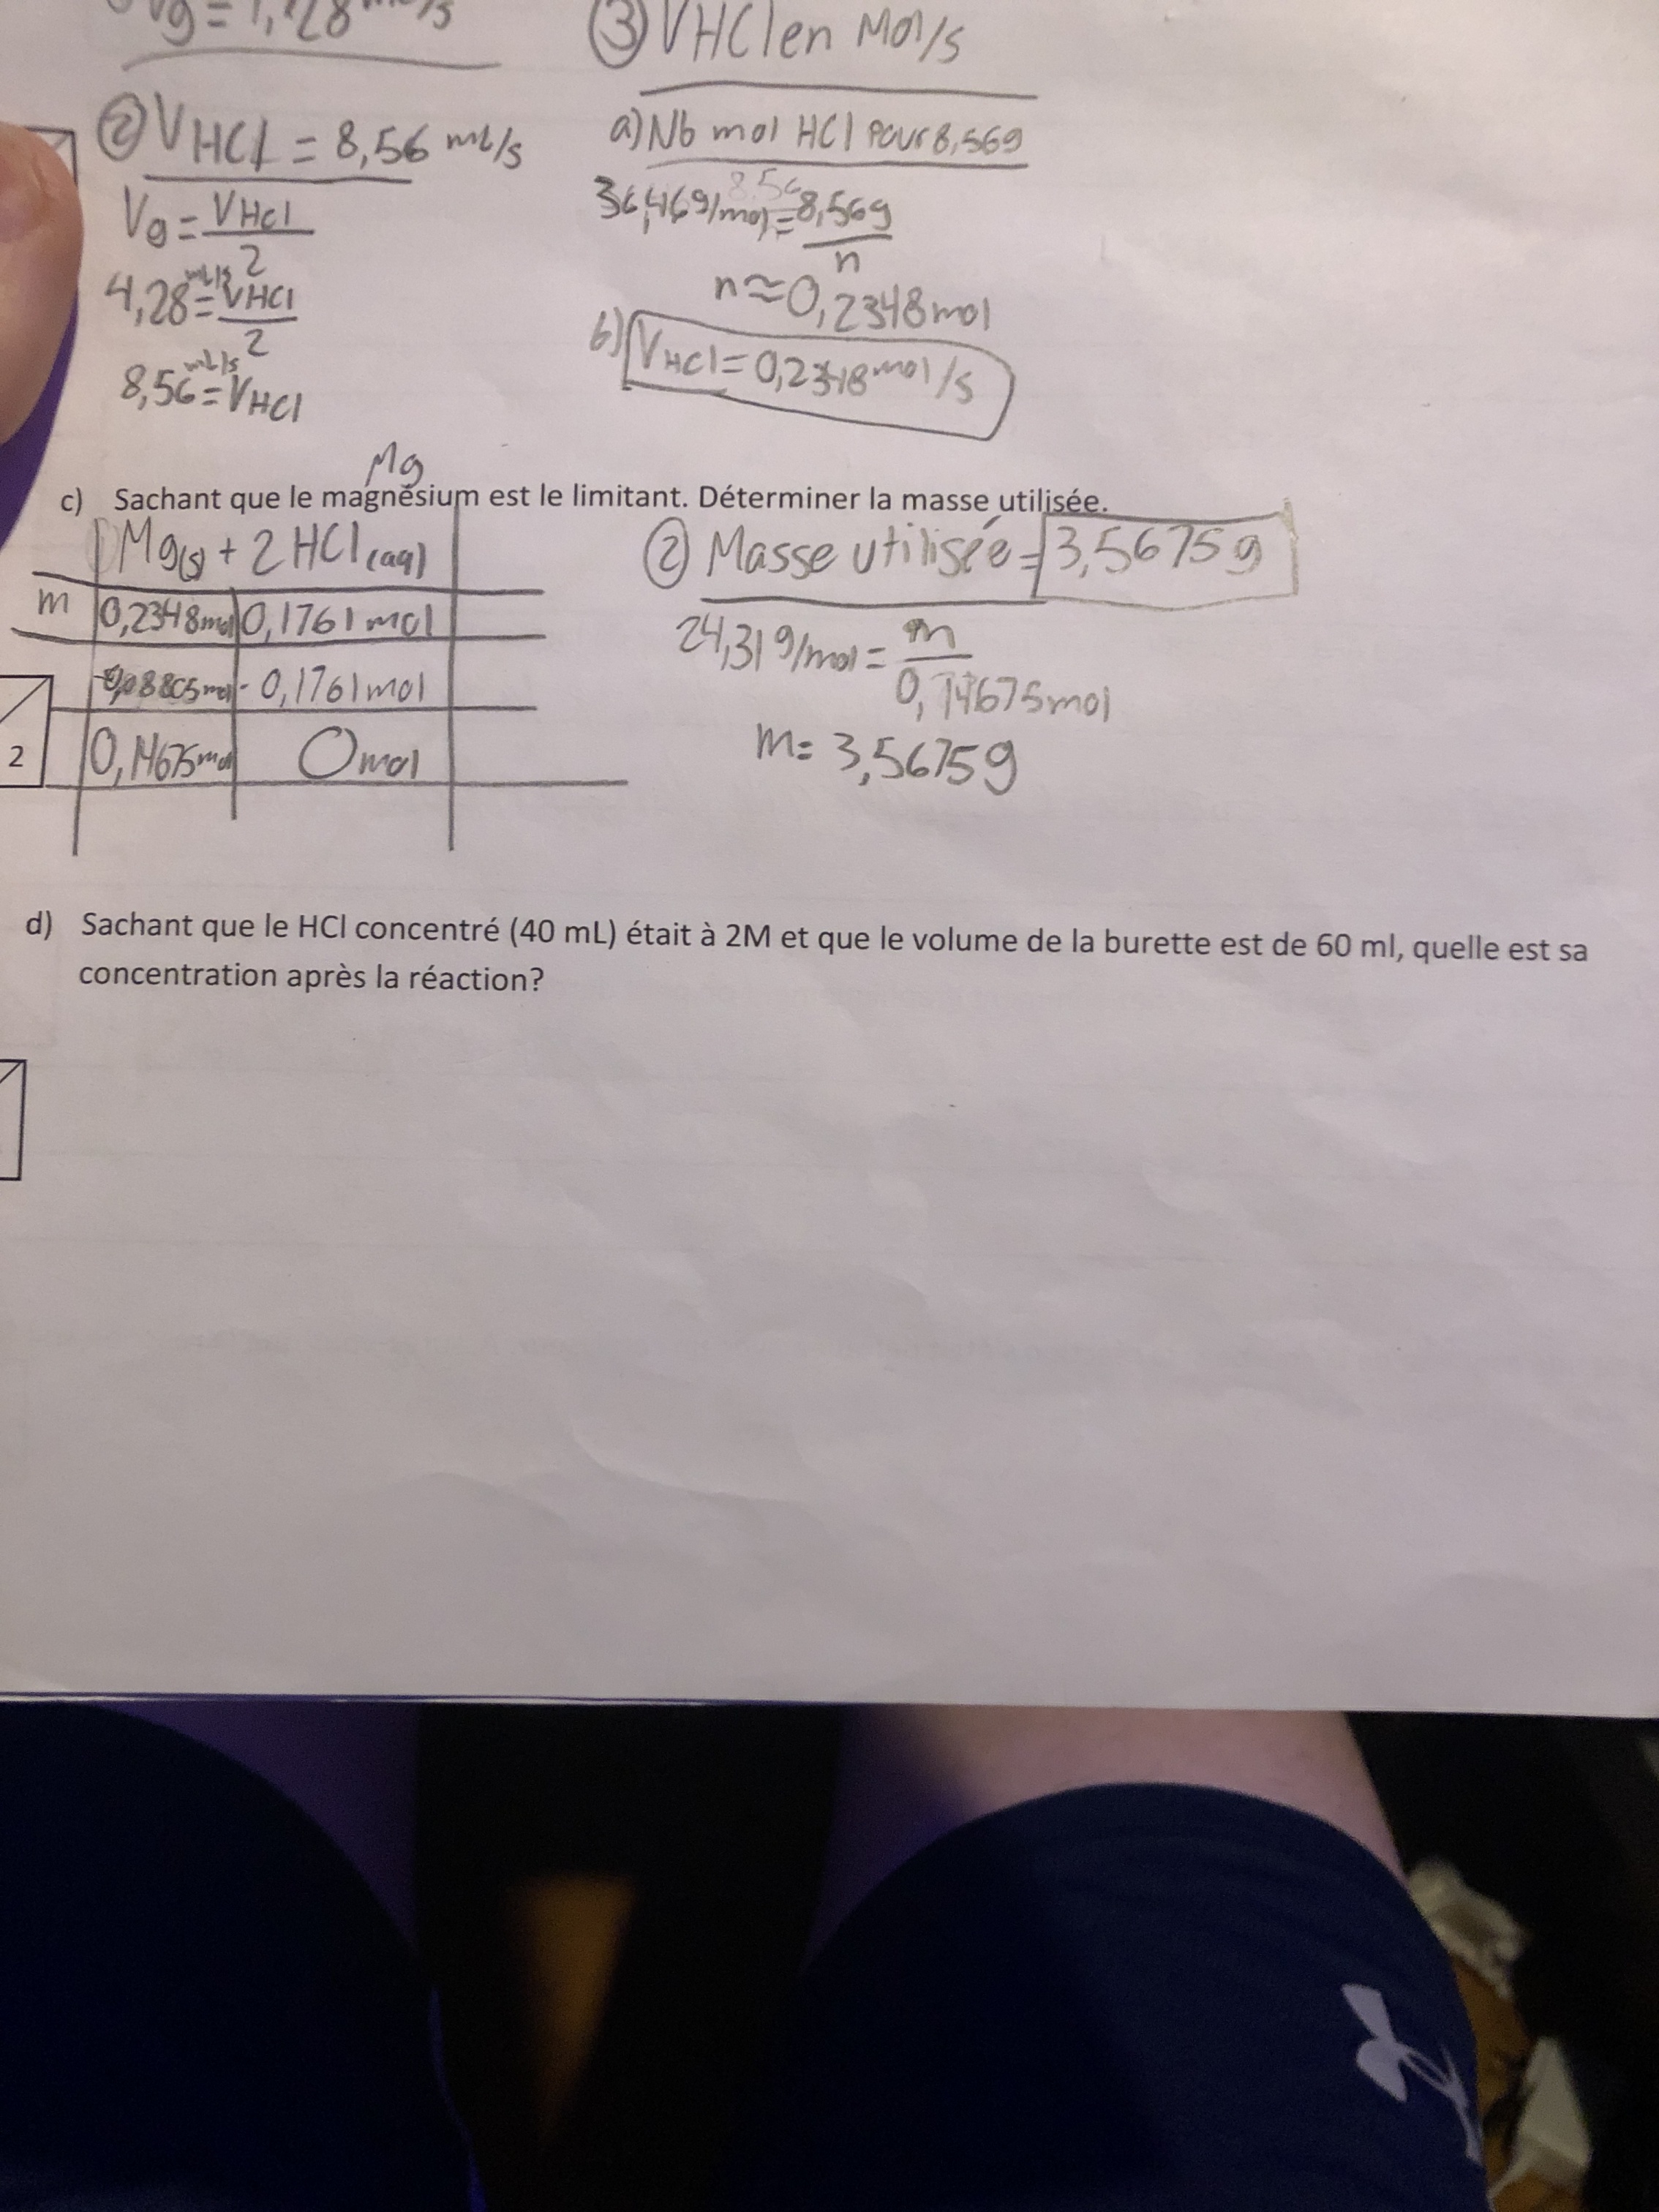 Vg = 1,728 mL/s
③ VHCl en mol/s
② VHCl = 8,56 mL/s
Vg = VHCl
2
4,28 mL/s = VHCl
2
8,56 mL/s = VHCl
a) Nb mol HCl pour 8,56g
36,46g/mol = 8,56g
n
n ≈ 0,2348 mol
b) VHCl = 0,2348 mol/s
Mg
c) Sachant que le magnésium est le limitant. Déterminer la masse utilisée.
Mg(s) + 2 HCl (aq)
m 0,2348mol 0,1761 mol
-0,08805mol - 0,1761mol
2 0,14675mol 0mol
② Masse utilisée = 3,5675g
24,31g/mol = m
0,14675mol
m = 3,5675g
d) Sachant que le HCl concentré (40 mL) était à 2M et que le volume de la burette est de 60 ml, quelle est sa
concentration après la réaction?